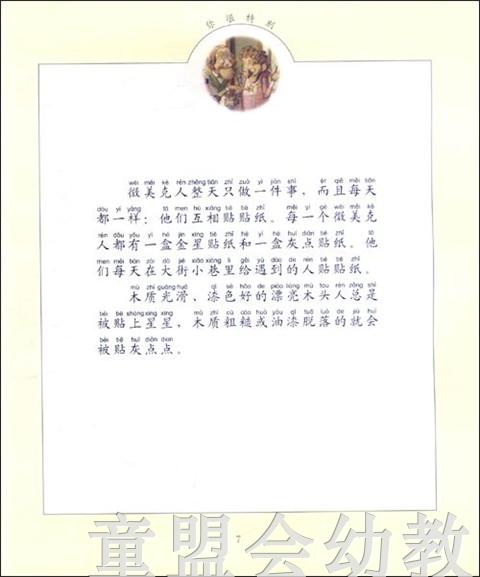 你很特别
wēi měi kè rén zhěng tiān zhǐ zuò yí jiàn shì ér qiě měi tiān
微美克人整天只做一件事，而且每天
dōu yí yàng tā men hù xiāng tiē tiē zhǐ měi yí gè wēi měi kè
都一样：他们互相贴贴纸。每一个微美克
rén dōu yǒu yì hé jīn xīng tiē zhǐ hé yì hé huī diǎn tiē zhǐ tā
人都有一盒金星贴纸和一盒灰点贴纸。他
men měi tiān zài dà jiē xiǎo xiàng lǐ gěi yù dào de rén tiē tiē zhǐ
们每天在大街小巷里给遇到的人贴贴纸。
mù zhì guāng huá qī sè hǎo de piào liang mù tóu rén zǒng shì
木质光滑、漆色好的漂亮木头人总是
bèi tiē shàng xīng xing mù zhì cū cāo huò yóu qī tuō luò de jiù huì
被贴上星星，木质粗糙或油漆脱落的就会
bèi tiē huī diǎn dian
被贴灰点点。
7
童盟会幼教